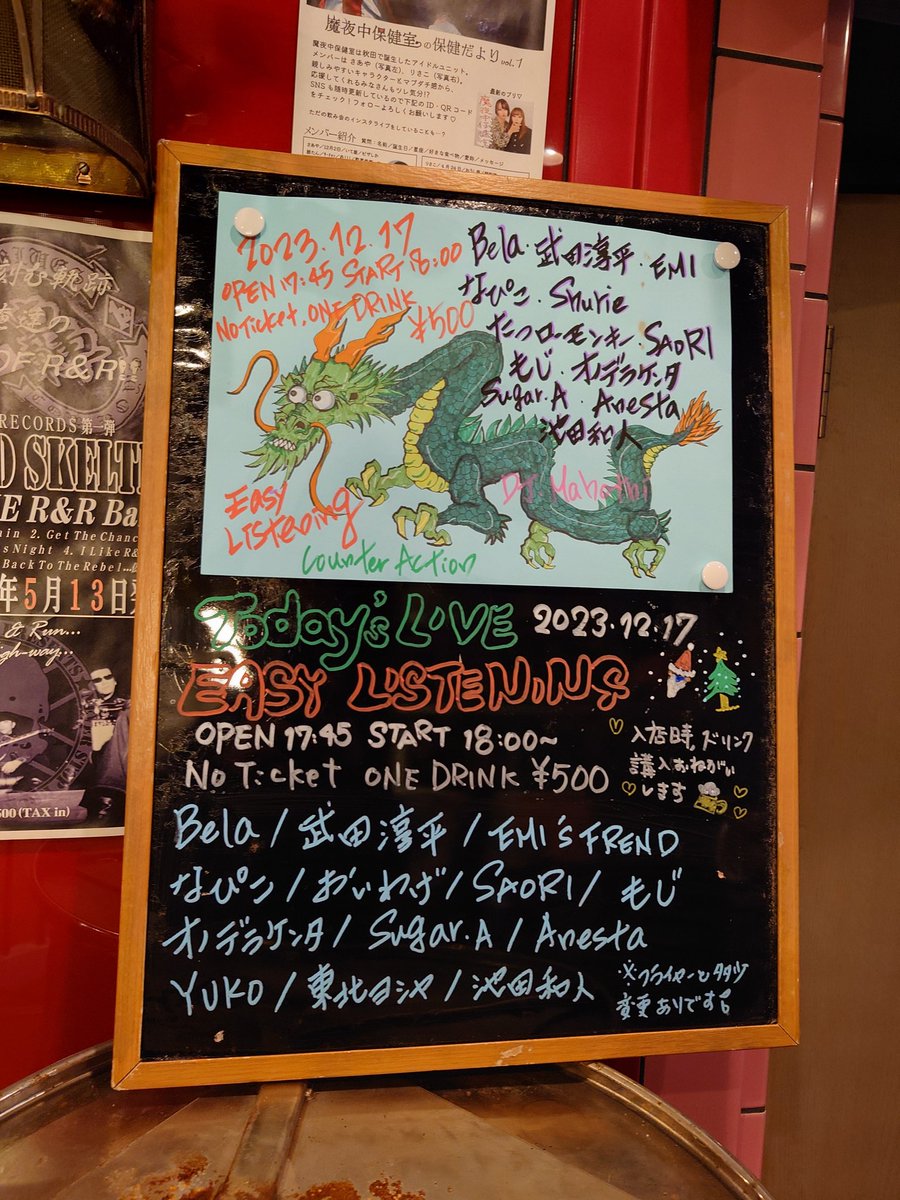 魔夜中保健室の保健だより vol.1
魔夜中保健室は秋田で誕生したアイドルユニット。
メンバーは さあや（写真左）、りさこ（写真右）。
親しみやすいキャラクターとマブダチ感から、
応援してくれるみなさんもツレ気分!?
SNSも随時更新しているので下記のID・QRコード
をチェック！フォローよろしくお願いします♡
ただの飲み会のインスタライブをしていることも…？
最新のプリ♡
メンバー紹介
質問：名前／誕生日／星座／好きな食べ物／愛称／メッセージ
2023.12.17
OPEN 17:45 START 18:00
No Ticket, ONE DRINK
¥500
Bela・武田淳平・EMI
なぴこ・Shurie
たつローモンキー・SAORI
もじ・オノデラケンタ
Sugar.A Anesta
池田和人
Easy
Listening
Counter Action
Today's LOVE 2023.12.17
EASY LISTENING
OPEN 17:45 START 18:00~
No Ticket ONE DRINK ¥500
入店時、ドリンク
講入おねがい
します
Bela / 武田淳平 / EMI'S FREND
なぴこ / おいわげ / SAORI / もじ
オノデラケンタ / Sugar.A / Anesta
YUKO / 東北ヨシヤ / 池田和人
※フライヤーと
変更ありです
刻む軌跡
OF R&R!!
RECORDS 第一弾
D SKELT
E R&R Ba
ain 2. Get The Chanc
s Night 4. I Like R&
Back To The Rebel...
年5月13日
& Run...
igh-way...
500 (TAX in)